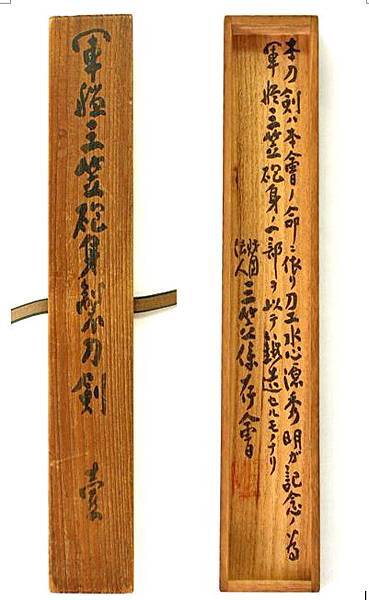 軍艦三笠砲身製刀剣 壹
本刀剣ハ本會ノ命ニ依リ刀工水心源秀明ガ記念ノ為
軍艦三笠砲身ノ一部ヲ以テ鍛造セルモノナリ
財團法人 三笠保存會